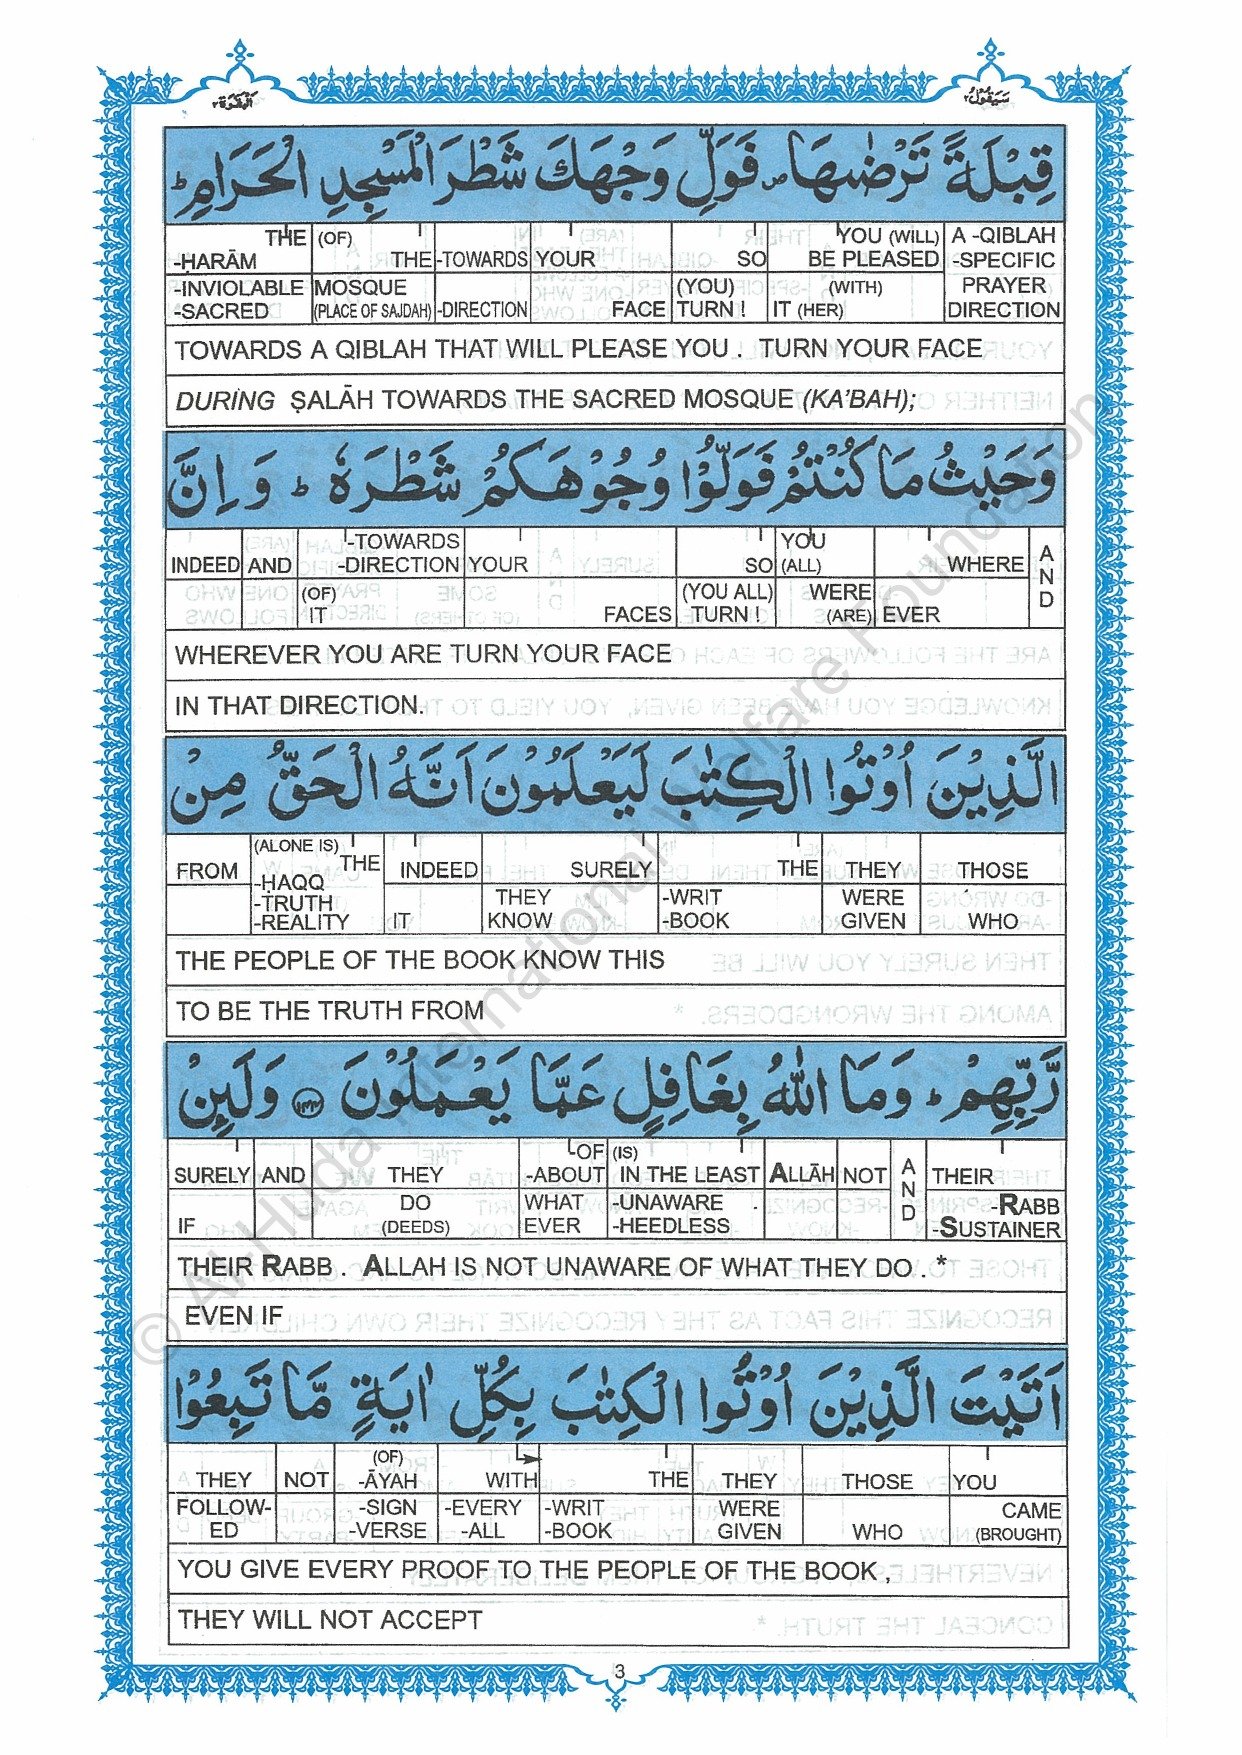 سَيَقُولُ ٢
اَلْبَقَرَة ٢
قِبْلَةً تَرْضٰىهَا ۪ فَوَلِّ وَجْهَكَ شَطْرَ الْمَسْجِدِ الْحَرَامِ ؕ
THE (OF) YOU (WILL) A -QIBLAH
-ḤARĀM THE -TOWARDS YOUR SO BE PLEASED -SPECIFIC
-INVIOLABLE MOSQUE (YOU) (WITH) PRAYER
-SACRED (PLACE OF SAJDAH) -DIRECTION FACE TURN ! IT (HER) DIRECTION
TOWARDS A QIBLAH THAT WILL PLEASE YOU . TURN YOUR FACE
DURING ṢALĀH TOWARDS THE SACRED MOSQUE (KA'BAH);
وَحَيْثُ مَا كُنْتُمْ فَوَلُّوْا وُجُوْهَكُمْ شَطْرَهٗ ؕ وَ اِنَّ
-TOWARDS YOU A
INDEED AND -DIRECTION YOUR SO (ALL) WHERE N
(OF) (YOU ALL) WERE D
IT FACES TURN ! (ARE) EVER
WHEREVER YOU ARE TURN YOUR FACE
IN THAT DIRECTION.
الَّذِيْنَ اُوْتُوا الْكِتٰبَ لَيَعْلَمُوْنَ اَنَّهُ الْحَقُّ مِنْ
(ALONE IS)
FROM THE INDEED SURELY THE THEY THOSE
-ḤAQQ THEY -WRIT WERE
-TRUTH
-REALITY IT KNOW -BOOK GIVEN WHO
THE PEOPLE OF THE BOOK KNOW THIS
TO BE THE TRUTH FROM
رَّبِّهِمْ ؕ وَمَا اللّٰهُ بِغَافِلٍ عَمَّا يَعْمَلُوْنَ ۝١٤٤ وَلَئِنْ
OF (IS) A
SURELY AND THEY -ABOUT IN THE LEAST ALLĀH NOT N THEIR
DO WHAT -UNAWARE D -RABB
IF (DEEDS) EVER -HEEDLESS -SUSTAINER
THEIR RABB . ALLAH IS NOT UNAWARE OF WHAT THEY DO . *
EVEN IF
اَتَيْتَ الَّذِيْنَ اُوْتُوا الْكِتٰبَ بِكُلِّ اٰيَةٍ مَّا تَبِعُوْا
(OF)
THEY NOT -ĀYAH WITH THE THEY THOSE YOU
FOLLOW- -SIGN -EVERY -WRIT WERE CAME
ED -VERSE -ALL -BOOK GIVEN WHO (BROUGHT)
YOU GIVE EVERY PROOF TO THE PEOPLE OF THE BOOK ,
THEY WILL NOT ACCEPT
3
© Al-Huda International Welfare Foundation